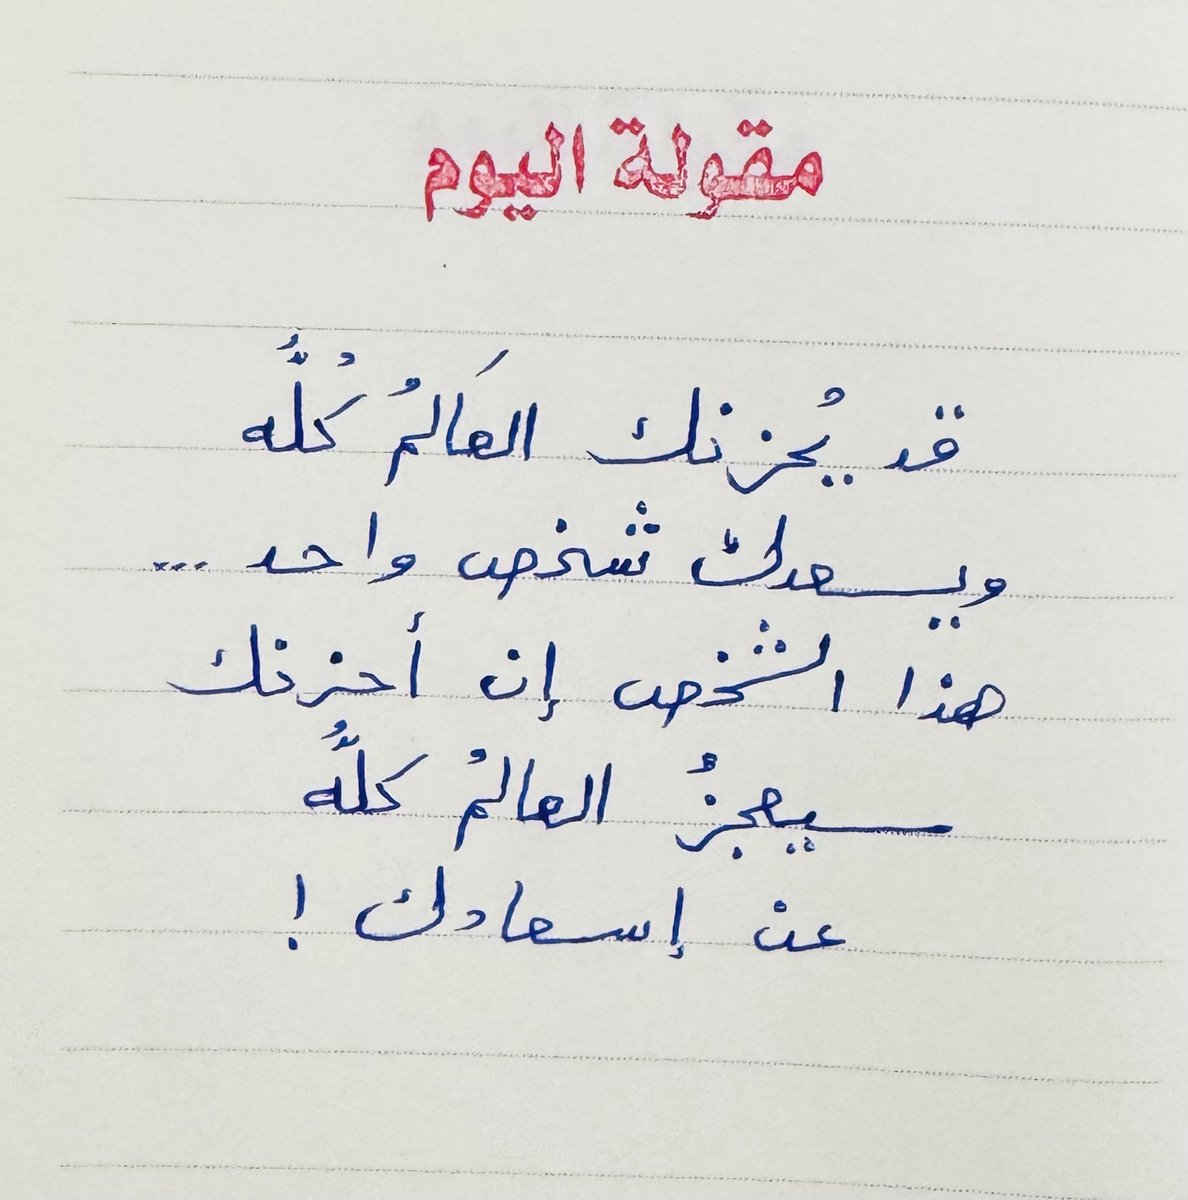 مقولة اليوم
قد يُحزنك العَالمُ كُلُّه
ويسعدك شخص واحد ...
هذا الشخص إن أحزنك
سيعجزُ العالمُ كلُّه
عن إسعادك !